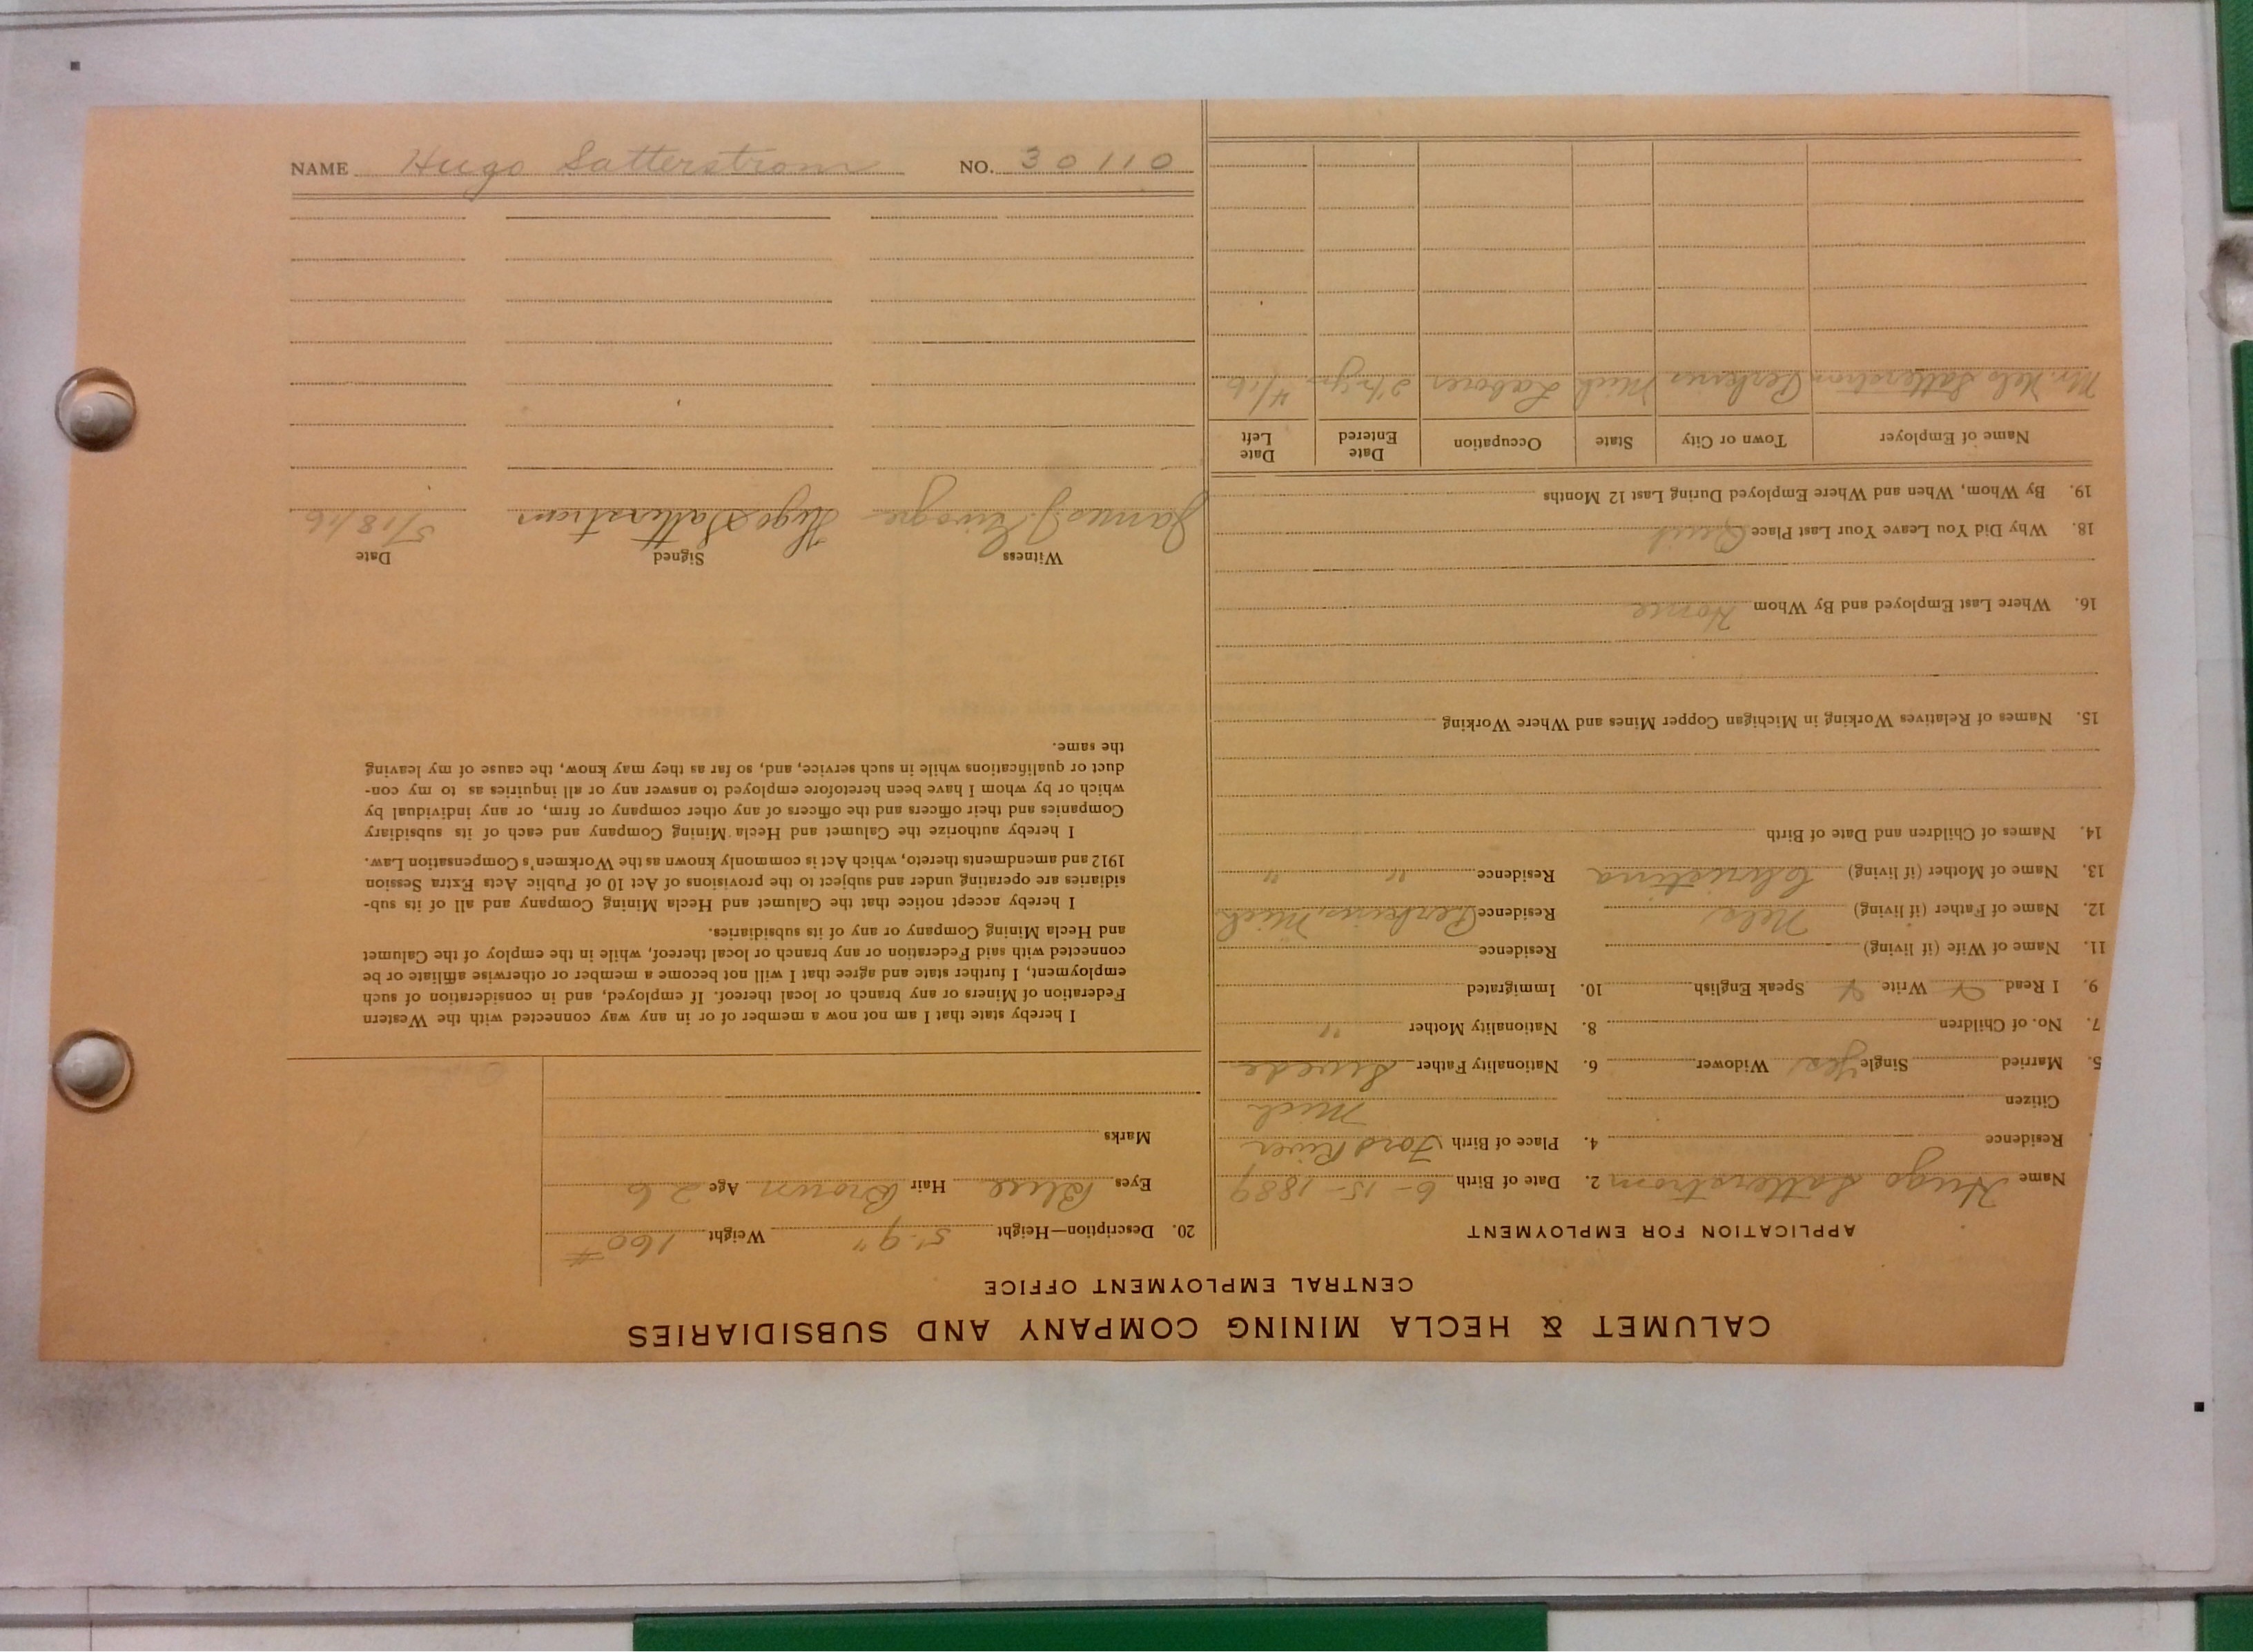 CALUMET & HECLA MINING COMPANY AND SUBSIDIARIES
CENTRAL EMPLOYMENT OFFICE
APPLICATION FOR EMPLOYMENT
Name Hugo Satterstrom 2. Date of Birth 6-15-1889
Residence 4. Place of Birth Ford River
Citizen Mich
5. Married Single Yes Widower 6. Nationality Father Swede
7. No. of Children 8. Nationality Mother "
9. I Read Write Speak English 10. Immigrated
11. Name of Wife (if living) Residence
12. Name of Father (if living) Nels Residence Perkins, Mich
13. Name of Mother (if living) Christina Residence " "
14. Names of Children and Date of Birth
15. Names of Relatives Working in Michigan Copper Mines and Where Working
16. Where Last Employed and By Whom Home
18. Why Did You Leave Your Last Place Quit
19. By Whom, When and Where Employed During Last 12 Months
Name of Employer Town or City State Occupation Date Entered Date Left
Mr. Nels Satterstrom Perkins Mich Laborer 4/16
20. Description—Height 5'.9" Weight 160#
Eyes Blue Hair Brown Age 26
Marks
I hereby state that I am not now a member of or in any way connected with the Western
Federation of Miners or any branch or local thereof. If employed, and in consideration of such
employment, I further state and agree that I will not become a member or otherwise affiliate or be
connected with said Federation or any branch or local thereof, while in the employ of the Calumet
and Hecla Mining Company or any of its subsidiaries.
I hereby accept notice that the Calumet and Hecla Mining Company and all of its sub-
sidiaries are operating under and subject to the provisions of Act 10 of Public Acts Extra Session
1912 and amendments thereto, which Act is commonly known as the Workmen's Compensation Law.
I hereby authorize the Calumet and Hecla Mining Company and each of its subsidiary
Companies and their officers and the officers of any other company or firm, or any individual by
which or by whom I have been heretofore employed to answer any or all inquiries as to my con-
duct or qualifications while in such service, and, so far as they may know, the cause of my leaving
the same.
Witness Signed Date
James J. Hugo Satterstrom 5/18/16
NAME Hugo Satterstrom NO. 30110